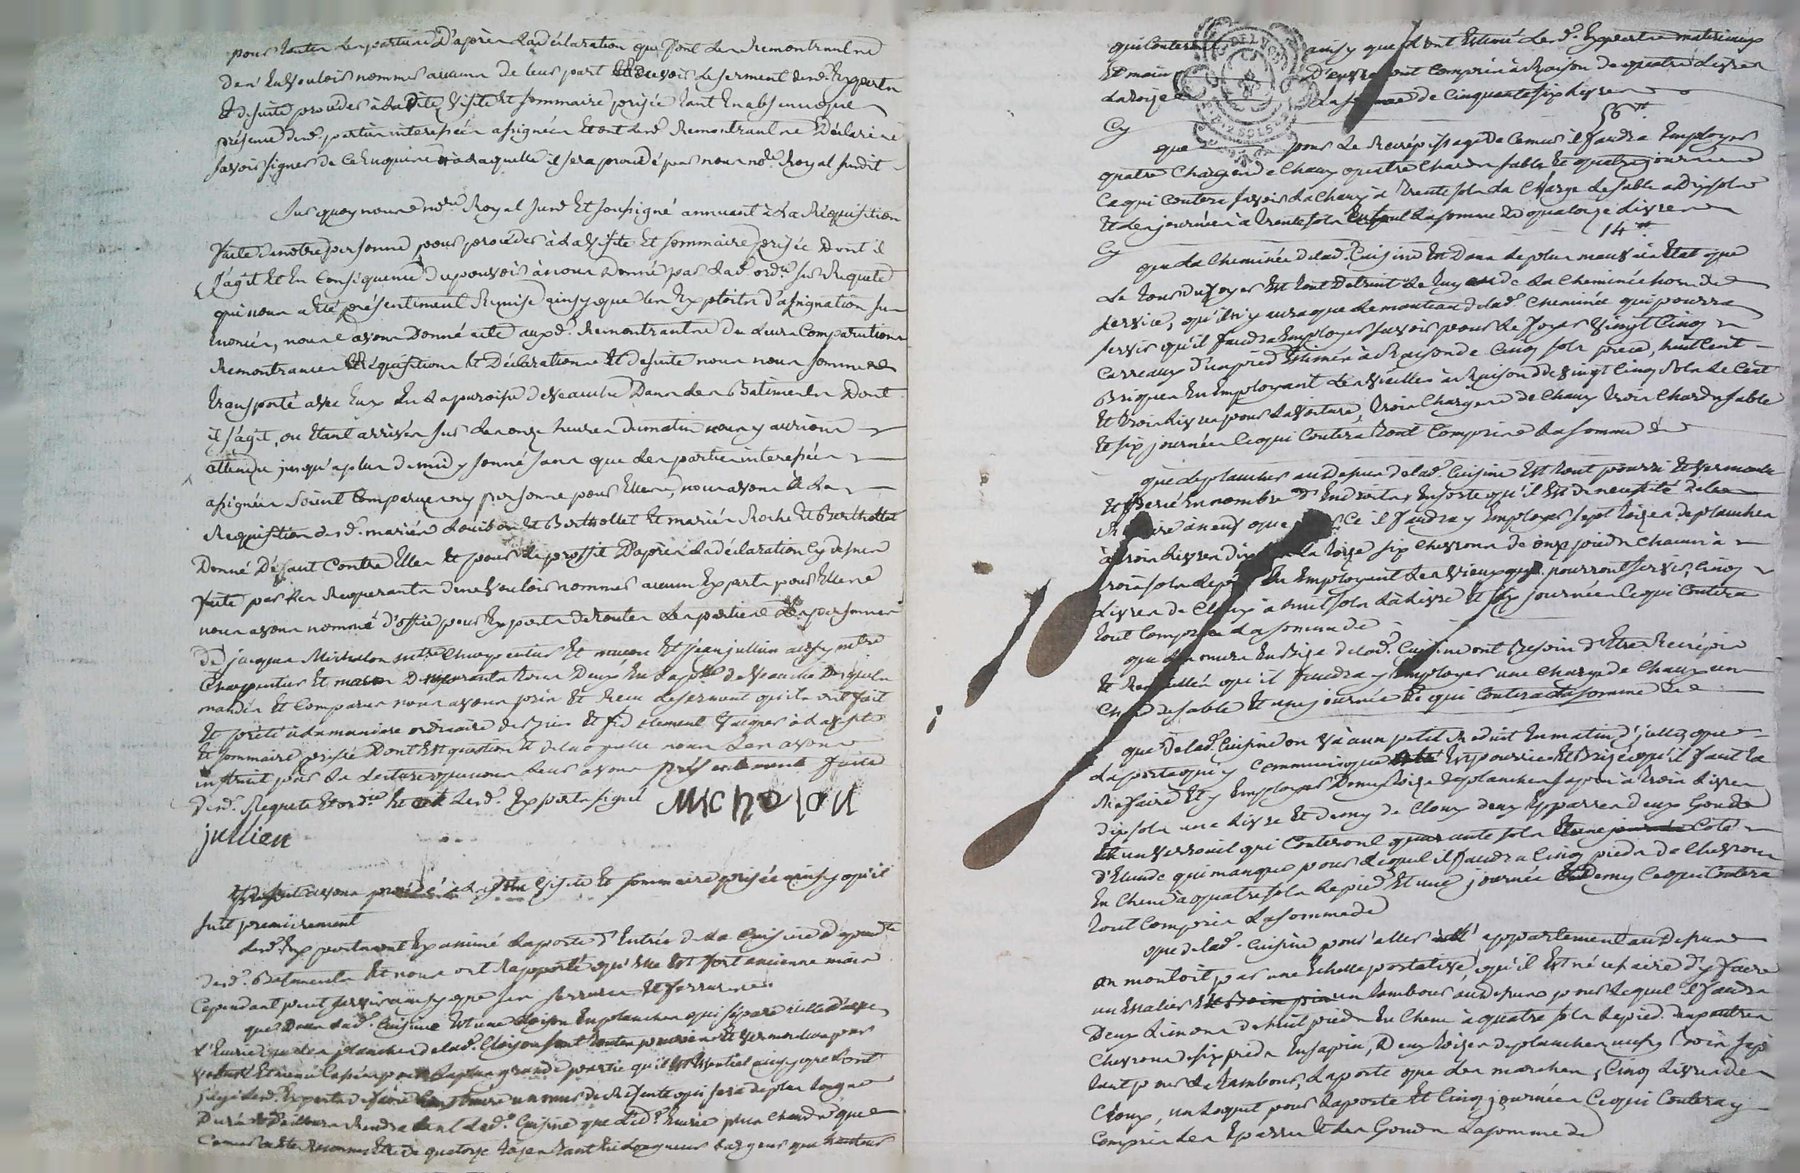 pour toutes les parties D'après la déclaration que font les remontrants
de n'En vouloir nommer aucun de leur part recevoir le serment desd. Experts
Et de suite proceder à ladite Visite Et sommaire prisée tant En absence que
présence desd. parties interessées assignées Et ont lesd. Remontrants Déclaré
savoir signer de ce Enquis à laquelle il sera procedé par nous no.re Royal susdit
Sur quoy nous no.re Royal Juré Et soussigné annuant à la Réquisition
faite de notre personne pour proceder à la visite Et sommaire prisée Dont il
s'agit Et En Conséquence du pouvoir à nous Donné par lad. ord.ce sur Requete
qui nous a Eté présentement Remise ainsy que les Exploits d'assignation sus
Enoncés, nous avons Donné acte auxd. Remontrants de leurs Comparutions
Remontrances Réquisitions Et Déclarations Et de suite nous nous sommes
transporté avec Eux En la paroisse de Veauche Dans les Batiments Dont
il s'agit, ou Etant arrivés sur les onze heures du matin nous y aurions
attendu jusqu'a plus de midy sonné sans que les parties interessées
assignées soient Comparues ny personne pour Elles, nous avons à la
Requisition desd. mariés Louison Et Berthollet Et mariés Roche Et Berthollet
Donné Défaut Contre Elles Et pour le proffit D'après la déclaration Cy dessus
faite par les Requerants de ne vouloir nommer aucun Experts pour Elles
nous avons nommé d'office pour Experts de toutes les parties les personnes
de jacques Michalon m.tre Charpentier Et macon Et jean jullien aussy m.tre
Charpentier Et macon Demeurants tous Deux En la p.sse de Veauche Desquels
mandés Et Comparus nous avons pris Et Reçu le serment qu'ils ont fait
Et prété à la maniere ordinaire de bien Et fidelement Vacquer à la Visite
Et sommaire prisée Dont Est question Et de laquelle nous les avons
instruit par la lecture que nous leur avons présentement faite
desd. Requete Et ord.ce Et ont lesd. Experts signé Michalon
jullien
De suite avons procédé à lad. Visite Et sommaire prisée ainsy qu'il
suit premierement
Lesd. Experts ont Examiné la porte d'Entrée de la Cuisine dépend.te
desd. Batiments Et nous ont Rapporté qu'Elle Est fort ancienne mais
Cependant peut servir ainsy que sa serrure Et ferrures
que Dans lad. Cuisine Est une Cloison En planches qui sépare icelle d'avec
l'Ecurie que les planches de lad. Cloison sont toutes pourries Et vermoulues
pour la plus grande partie qu'il Est Essentiel ainsy que l'ont
jugé lesd. Experts de faire Construire un mur de Refente qui sera de plus longue
Durée Et d'ailleurs Rendra tant lad. Cuisine que lad. Ecurie plus chaude que
Ce mur de quatorze toises tant En longueur largeur que hauteur
qui Contera ainsy que l'ont Estimé lesd. Experts materiaux
Et main D'œuvre tout Compris à Raison de quatre Livres
la toise La somme de Cinquante six Livres
Cy 56 tt
que pour le Recrépissage de Ce mur il faudra Employer
quatre Charges de Chaux quatre Chards sable Et quatre journées
Ce qui Contera savoir la Chaux à trente sols la Charge le sable a Dix sols
Et les journées à trente sols la somme de quatorze livres
Cy 14 tt
que la Cheminée de lad. Cuisine Est Dans le plus mauvais Etat que
le tour du foyer Est tout detruit le tuyau de la Cheminée hors de
service, qu'il n'y aura que le manteau de lad. Cheminée qui pourra
servir qu'il faudra Employer savoir pour le foyer Vingt Cinq
Carreaux d'un pied Estimés à Raison de Cinq sols piece, huit Cent
Briques En Employant les vieilles à Raison de Vingt Cinq sols le Cent
Et trois livres pour la voiture, trois Charges de Chaux trois Chards sable
Et six journées Ce qui Contera tout Compris La somme de
que le plancher au dessus de lad. Cuisine Est tout pourri Et vermoulu
Et percé En nombre D'Endroits, En sorte qu'il Est de necessité de le
Refaire à neuf que pour Ce il faudra y Employer sept toises de plancher
à trois Livres dix la toise six Chevrons de onze pieds Chacun à
trois sols le pied En Employant les vieux qui pourront servir, Cinq
Livres de Cloux à huit sols la Livre Et six journées Ce qui Contera
tout Compris La somme de
que les murs En Bize de lad. Cuisine ont Besoin d'Etre Recrépis
Et Remaillés qu'il faudra y Employer une Charge de Chaux un
Chard de sable Et une journée Ce qui Contera La somme de
que de lad. Cuisine on Va à un petit Reduit En matin d'icelle que
la porte qui y Communique Est pourrie Et brisée qu'il faut la
Refaire Et y Employer Deux toises de planches sapin à trois Livres
dix sols une Livre Et demy de Cloux deux Epparres deux Gonds
Et un verrouil qui Conteront quarante sols Coté
d'Etude qui manque pour lequel il faudra Cinq pieds de Chevrons
En Chene à quatre sols le pied Et une journée Et demy Ce qui Contera
tout Compris La somme de
que de lad. Cuisine pour aller à l'appartement au Dessus
on montoit par une Echelle portative, qu'il Est nécessaire d'y faire
un Escalier un tambour au dessus pour lequel il faudra
Deux Limons de huit pieds En Chene à quatre sols le pied, quatre
Chevrons de six pieds En sapin, Deux toises de planches aussy Bois sap
tant pour le tambour, la porte que les marches, Cinq Livres de
Cloux, un Loquet pour la porte Et Cinq journées Ce qui Contera y
Compris les Eparres Et les Gonds La somme de